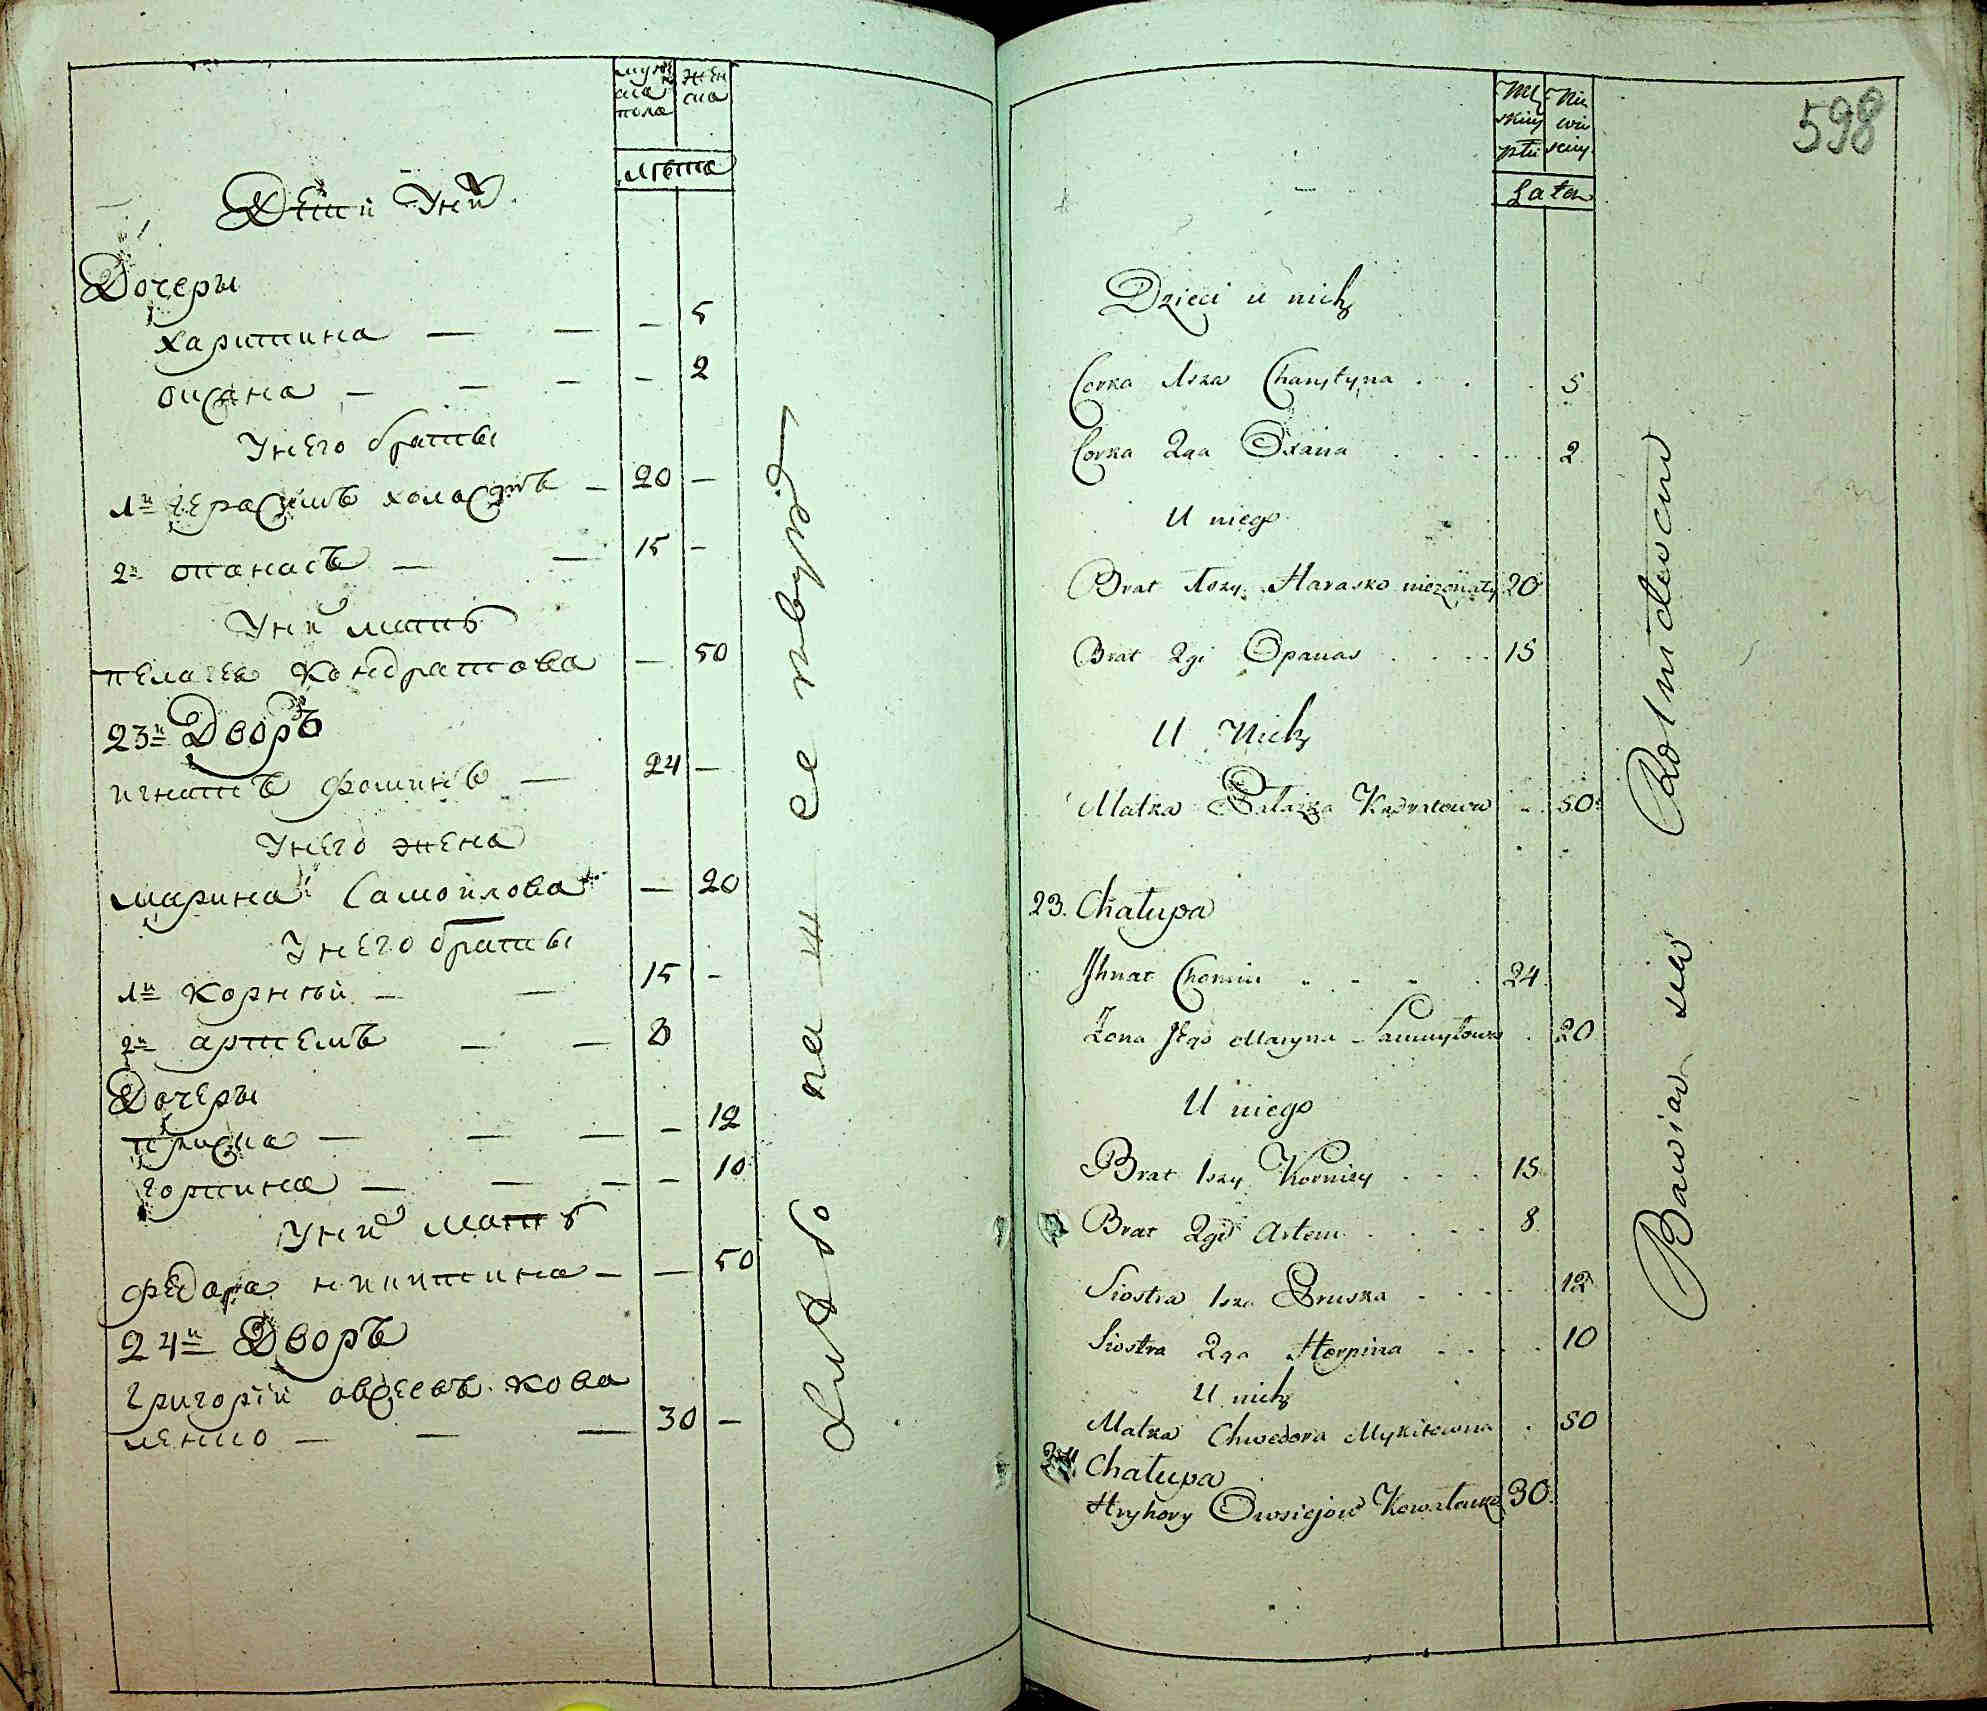 мужеска пола
женска
Лѣта
Дети у них
Дочеры
харитина — — — 5
оксана — — — — 2
у него браты
1й герасимъ холостъ — 20 —
2й опанасъ — — 15 —
у них мать
пелагея Кондратова — 50
23й Дворъ
игнатъ фоминъ — 24 —
у него жена
марина Самойлова — 20
у него браты
1й корнѣй — — 15 —
2й артемъ — — 8
Дочеры
приска — — — — 12
горпина — — — — 10
у них мать
федора никитина — — 50
24й Дворъ
григорій овсеевъ кова
ленко — — — 30 —
Męskiey płci
Niewieskiey
Lata
598
Dzieci u nich
Corka 1sza Charytyna . . . 5
Corka 2ga Oxana . . . . . 2
U niego
Brat 1szy Harasko niezonaty 20
Brat 2gi Opanas . . . . 15
U Nich
Matka Pałazka Kądratowa - 50
23. Chałupa
Jhnat Chomin . . . . 24
Żona Jego Maryna Samuyłowa . 20
U niego
Brat 1szy Korniey . . . 15
Brat 2gi Artem . . . . 8
Siostra 1sza Pruska . . . . . 12
Siostra 2ga Horpina . . . . 10
U nich
Matka Chwedora Mykitowna . 50
24. Chałupa
Hryhory Owsiejow Kowalenko 30
Bawiąs się Rolnictwem